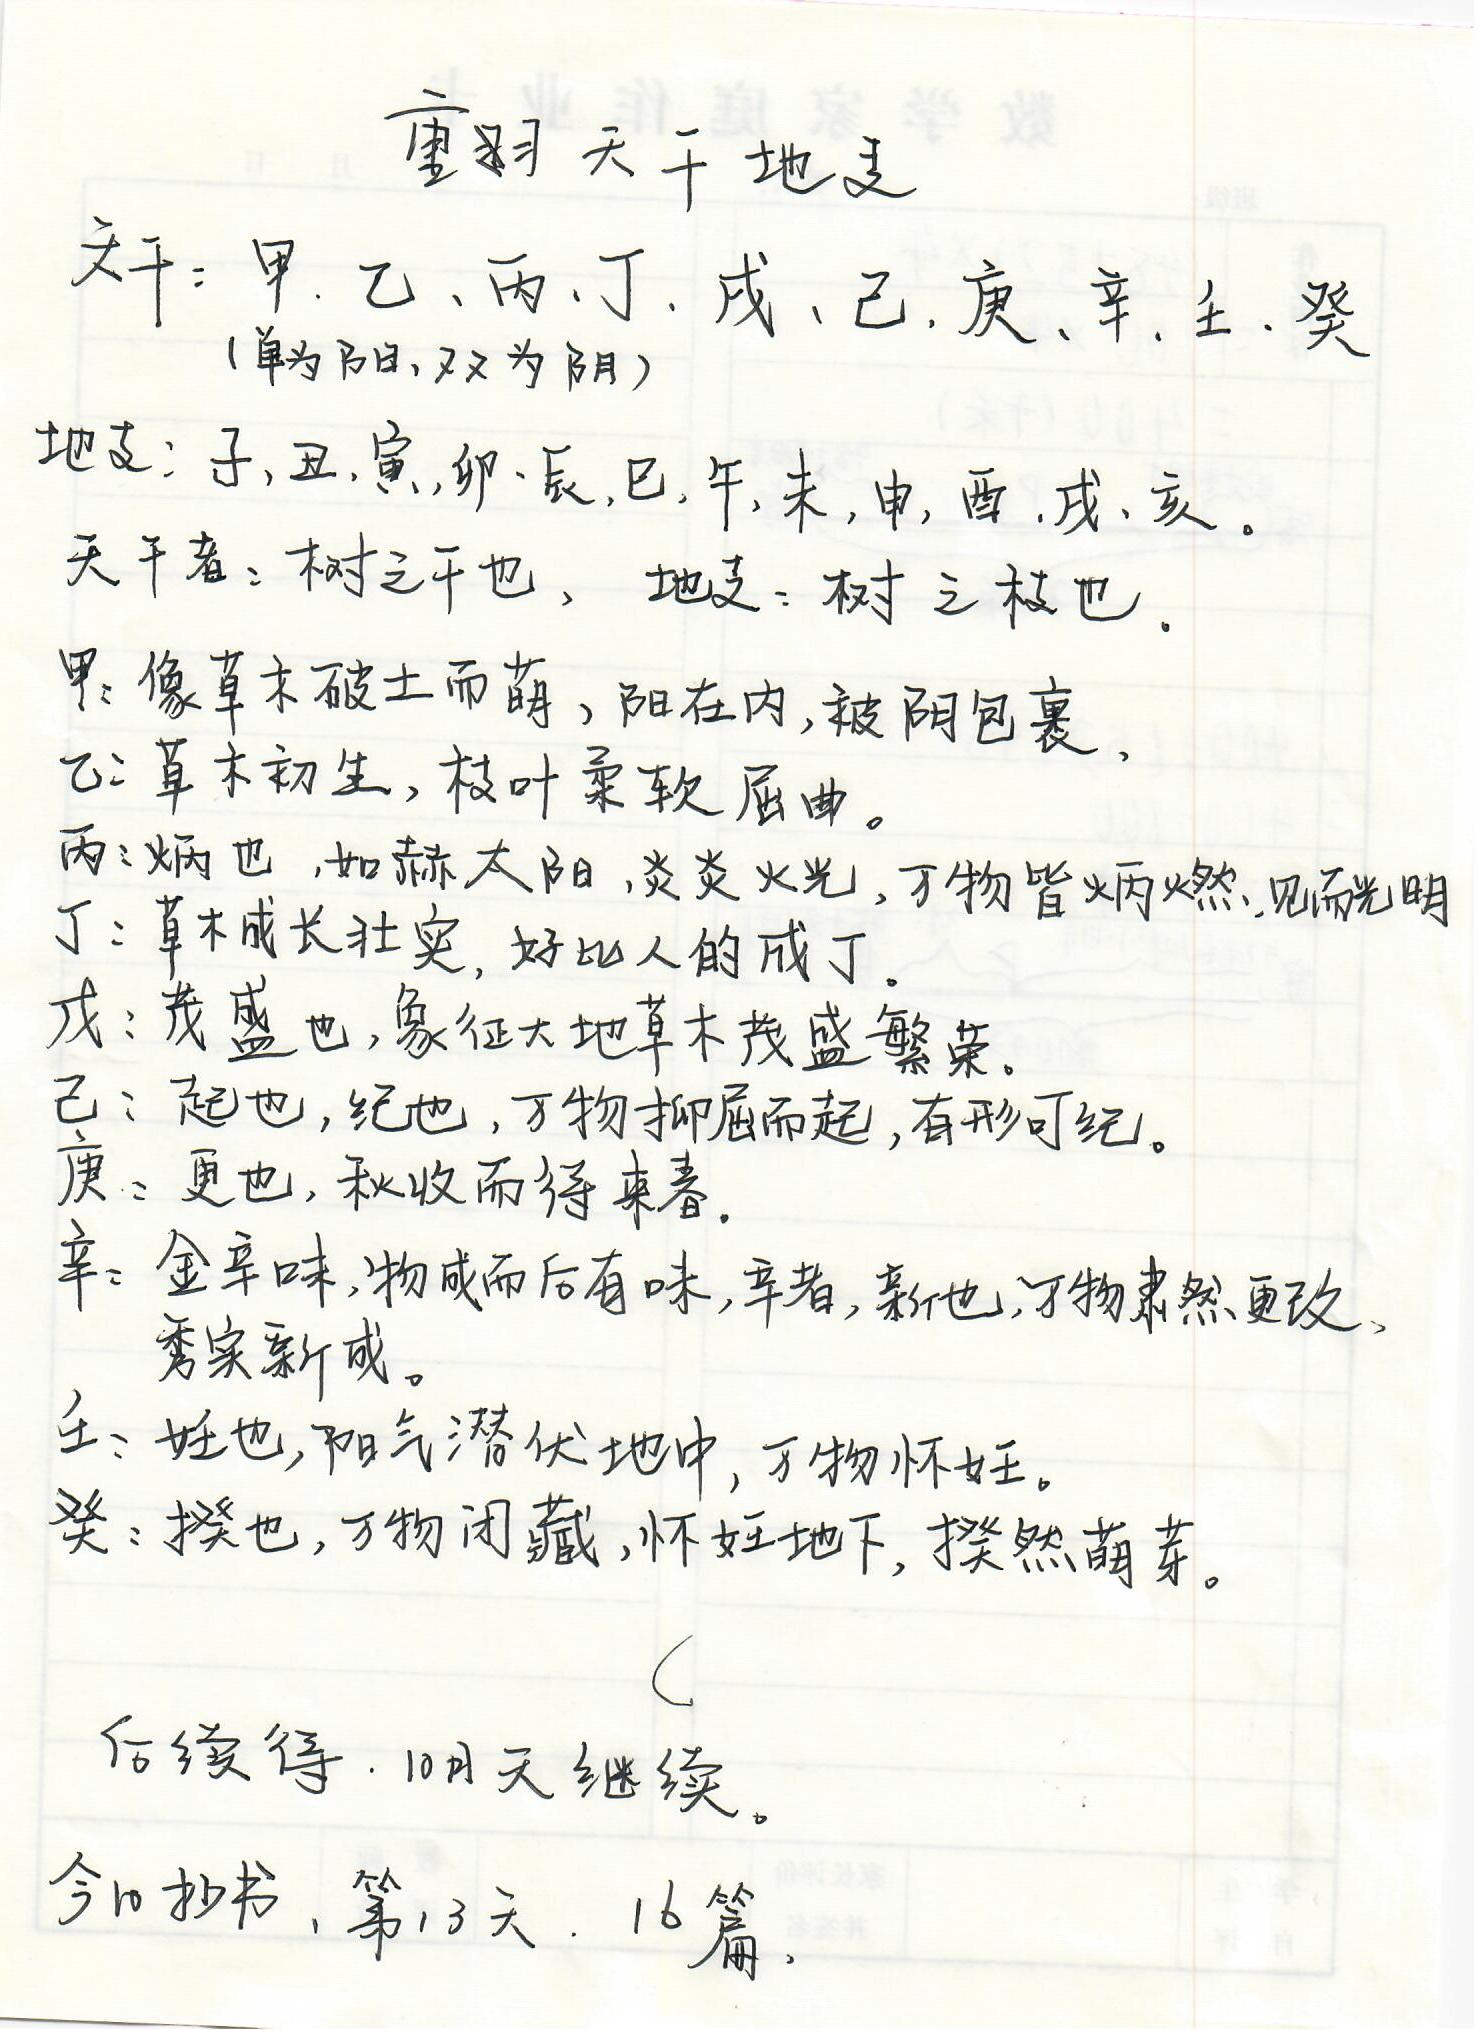 重习天干地支
天干：甲、乙、丙、丁、戊、己、庚、辛、壬、癸
（单为阳，双为阴）
地支：子，丑，寅，卯、辰，巳，午，未，申，酉，戌、亥。
天干者：树之干也，地支：树之枝也。
甲：像草木破土而萌，阳在内，被阴包裹，
乙：草木初生，枝叶柔软屈曲。
丙：炳也，如赫太阳，炎炎火光，万物皆炳燃，见而光明
丁：草木成长壮实，好比人的成丁。
戊：茂盛也，象征大地草木茂盛繁荣。
己：起也，纪也，万物抑屈而起，有形可纪。
庚：更也，秋收而待来春。
辛：金辛味，物成而后有味，辛者，新也，万物肃然更改、
秀实新成。
壬：妊也，阳气潜伏地中，万物怀妊。
癸：揆也，万物闭藏，怀妊地下，揆然萌芽。
后续待．明天继续。
今日抄书、第13天．16篇，
数学家庭作业卡
月 日
班级
家长评价
并签名
学生
自评